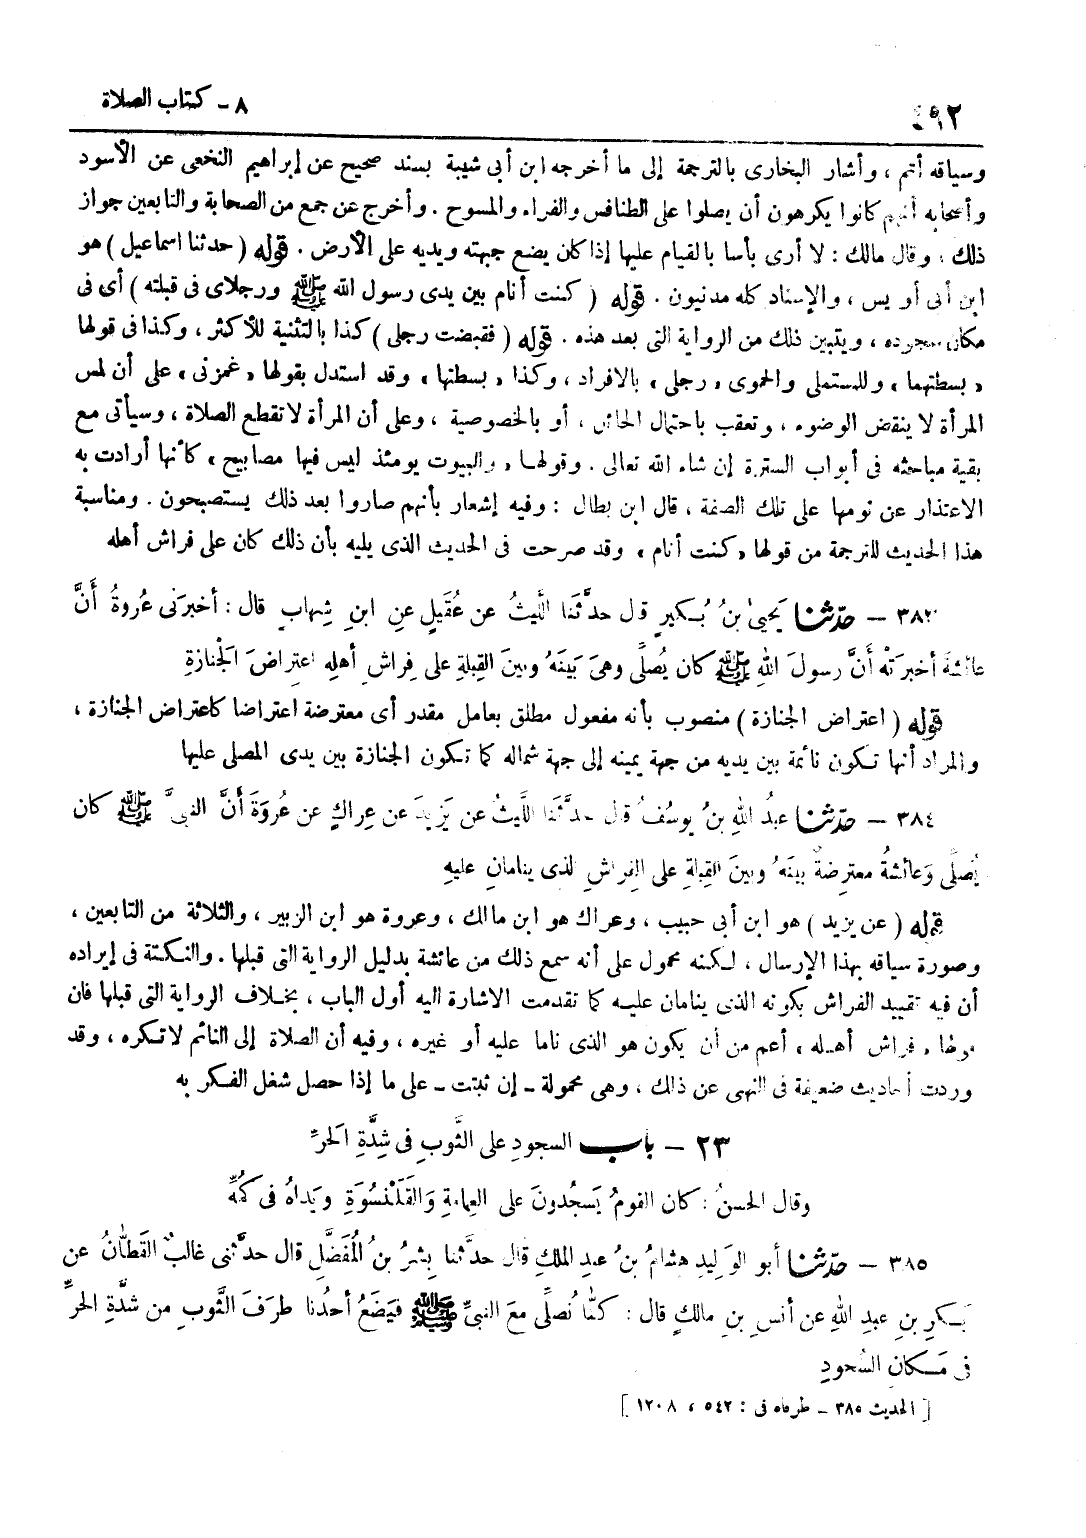 ٤٩٢
٨ - كتاب الصلاة
وسياقه أتم ، وأشار البخارى بالترجمة إلى ما أخرجه ابن أبى شيبة بسند صحيح عن إبراهيم النخعى عن الأسود
وأصحابه أنهم كانوا يكرهون أن يصلوا على الطنافس والفراء والمسوح . وأخرج عن جمع من الصحابة والتابعين جواز
ذلك ، وقال مالك : لا أرى بأسا بالقيام عليها إذا كان يضع جبهته ويديه على الأرض . قوله ( حدثنا اسماعيل ) هو
ابن أبى أويس ، والإسناد كله مدنيون . قوله ( كنت أنام بين يدى رسول الله ﷺ ورجلاى فى قبلته ) أى فى
مكان سجوده ، ويتبين ذلك من الرواية التى بعد هذه . قوله ( فقبضت رجلى ) كذا بالتثنية للأكثر ، وكذا فى قولها
« بسطتهما » وللمستملى والحموى « رجلى » بالافراد ، وكذا « بسطتها » وقد استدل بقولها « غمزنى » على أن لمس
المرأة لا ينقض الوضوء ، وتعقب باحتمال الحائل ، أو بالخصوصية ، وعلى أن المرأة لا تقطع الصلاة ، وسيأتى مع
بقية مباحثه فى أبواب السترة إن شاء الله تعالى . وقولها « والبيوت يومئذ ليس فيها مصابيح » كأنها أرادت به
الاعتذار عن نومها على تلك الصفة ، قال ابن بطال : وفيه إشعار بأنهم صاروا بعد ذلك يستصبحون . ومناسبة
هذا الحديث للترجمة من قولها « كنت أنام » وقد صرحت فى الحديث الذى يليه بأن ذلك كان على فراش أهله
٣٨٣ - حدّثنا يَحيىٰ بنُ بُكَيرٍ قال حدَّثَنا اللَّيثُ عن عُقَيلٍ عنِ ابنِ شِهابٍ قال : أخبرَنى عُروةُ أَنَّ
عائشةَ أخبرَتْه أنَّ رسولَ اللهِ ﷺ كان يُصلِّى وهىَ بَينَهُ وبينَ القِبلةِ على فِراشِ أهلِهِ اعتِراضَ الجَنازةِ
قوله ( اعتراض الجنازة ) منصوب بأنه مفعول مطلق بعامل مقدر أى معترضة اعتراضا كاعتراض الجنازة ،
والمراد أنها تكون نائمة بين يديه من جهة يمينه إلى جهة شماله كما تكون الجنازة بين يدى المصلى عليها
٣٨٤ - حدّثنا عبدُ اللهِ بنُ يوسُفُ قال حدَّثَنا اللَّيثُ عن يَزِيدَ عن عِراكٍ عن عُروَةَ أَنَّ النبىَّ ﷺ كان
يُصلِّى وَعائشةُ معترِضةٌ بينَهُ وبينَ القِبلةِ على الفِراشِ الذى ينامانِ عليهِ
قوله ( عن يزيد ) هو ابن أبى حبيب ، وعراك هو ابن مالك ، وعروة هو ابن الزبير ، والثلاثة من التابعين ،
وصورة سياقه بهذا الإرسال ، لكنه محمول على أنه سمع ذلك من عائشة بدليل الرواية التى قبلها . والنكتة فى إيراده
أن فيه تقييد الفراش بكونه الذى ينامان عليه كما تقدمت الاشارة اليه أول الباب ، بخلاف الرواية التى قبلها فان
قولها « فراش أهله » أعم من أن يكون هو الذى ناما عليه أو غيره ، وفيه أن الصلاة إلى النائم لا تكره ، وقد
وردت أحاديث ضعيفة فى النهى عن ذلك ، وهى محمولة - إن ثبتت - على ما إذا حصل شغل الفكر به
٢٣ - باب السجودِ على الثَّوبِ فى شِدَّةِ الحَرِّ
وقال الحسنُ : كان القومُ يَسجُدونَ على العِمامةِ وَالقَلَنْسُوَةِ ويَداهُ فى كُمِّهِ
٣٨٥ - حدّثنا أبو الوَليدِ هِشامُ بنُ عبدِ الملكِ قال حدَّثنا بِشرُ بنُ المُفضَّلِ قال حدَّثنى غالبٌ القَطّانُ عن
بَكرِ بنِ عبدِ اللهِ عن أنسِ بنِ مالكٍ قال : كنَّا نُصلِّى معَ النبىِّ ﷺ فيَضَعُ أحدُنا طرَفَ الثَّوبِ من شدَّةِ الحرِّ
فى مَكانِ السُّجودِ
[ الحديث ٣٨٥ - طرفاه فى : ٥٤٢ ، ١٢٠٨ ]